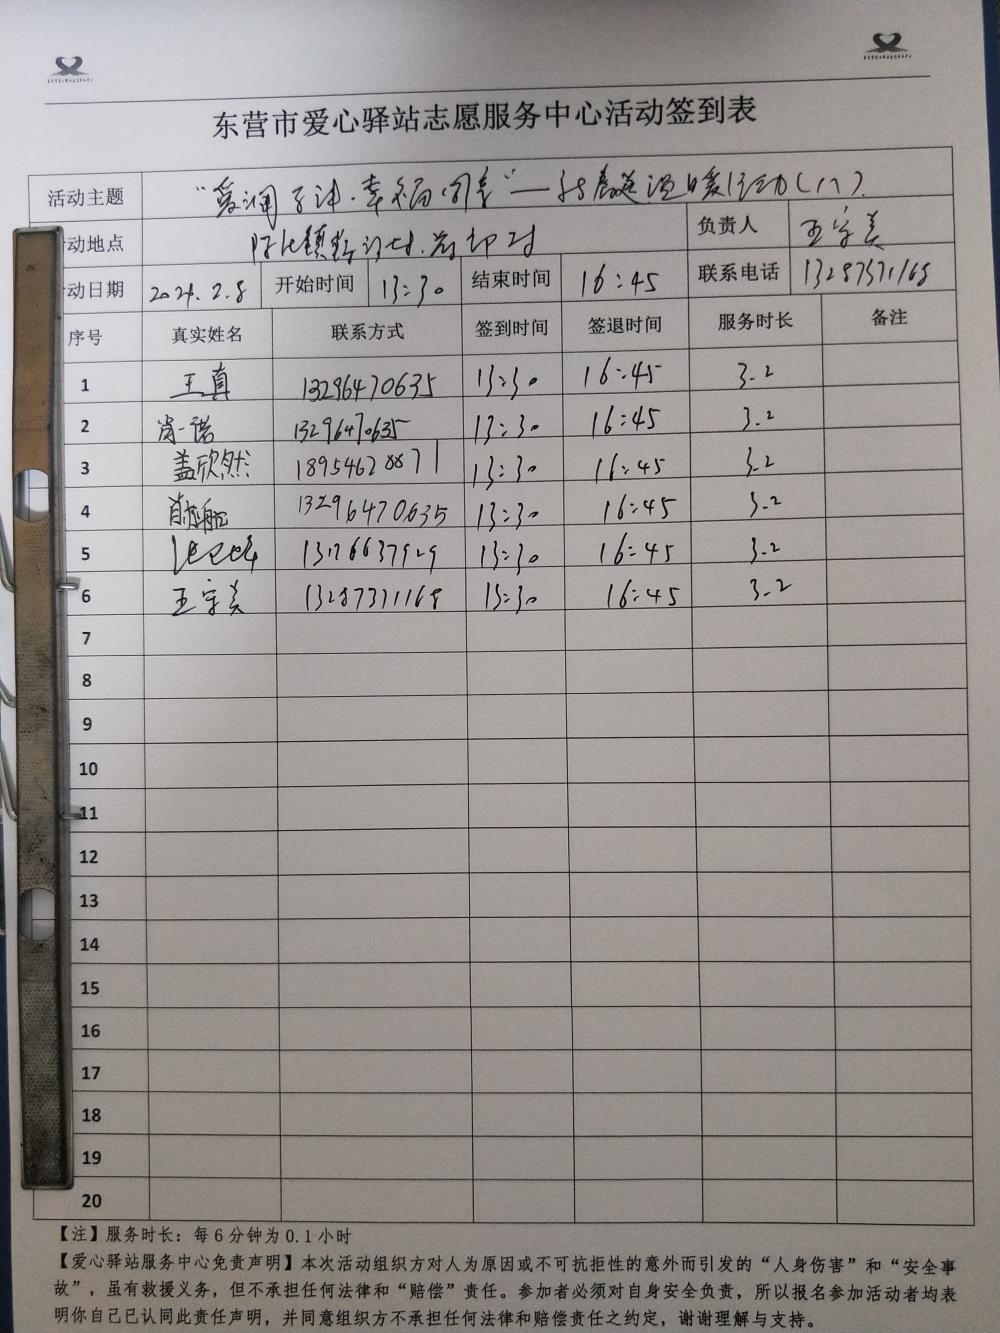 东营市爱心驿站志愿服务中心活动签到表
活动主题 “爱润 幸福 ”— 温暖行动（八）
动地点 镇 村 负责人 王守美
动日期 2024.2.8 开始时间 13:30 结束时间 16:45 联系电话
序号 真实姓名 联系方式 签到时间 签退时间 服务时长 备注
1 王真 13296470635 13:30 16:45 3.2
2 肖一诺 13296470635 13:30 16:45 3.2
3 盖欣然 18954628871 13:30 16:45 3.2
4 13296470635 13:30 16:45 3.2
5 13:30 16:45 3.2
6 王守美 13:30 16:45 3.2
7
8
9
10
11
12
13
14
15
16
17
18
19
20
【注】服务时长：每6分钟为0.1小时
【爱心驿站服务中心免责声明】本次活动组织方对人为原因或不可抗拒性的意外而引发的“人身伤害”和“安全事
故”，虽有救援义务，但不承担任何法律和“赔偿”责任。参加者必须对自身安全负责，所以报名参加活动者均表
明你自己已认同此责任声明，并同意组织方不承担任何法律和赔偿责任之约定，谢谢理解与支持。